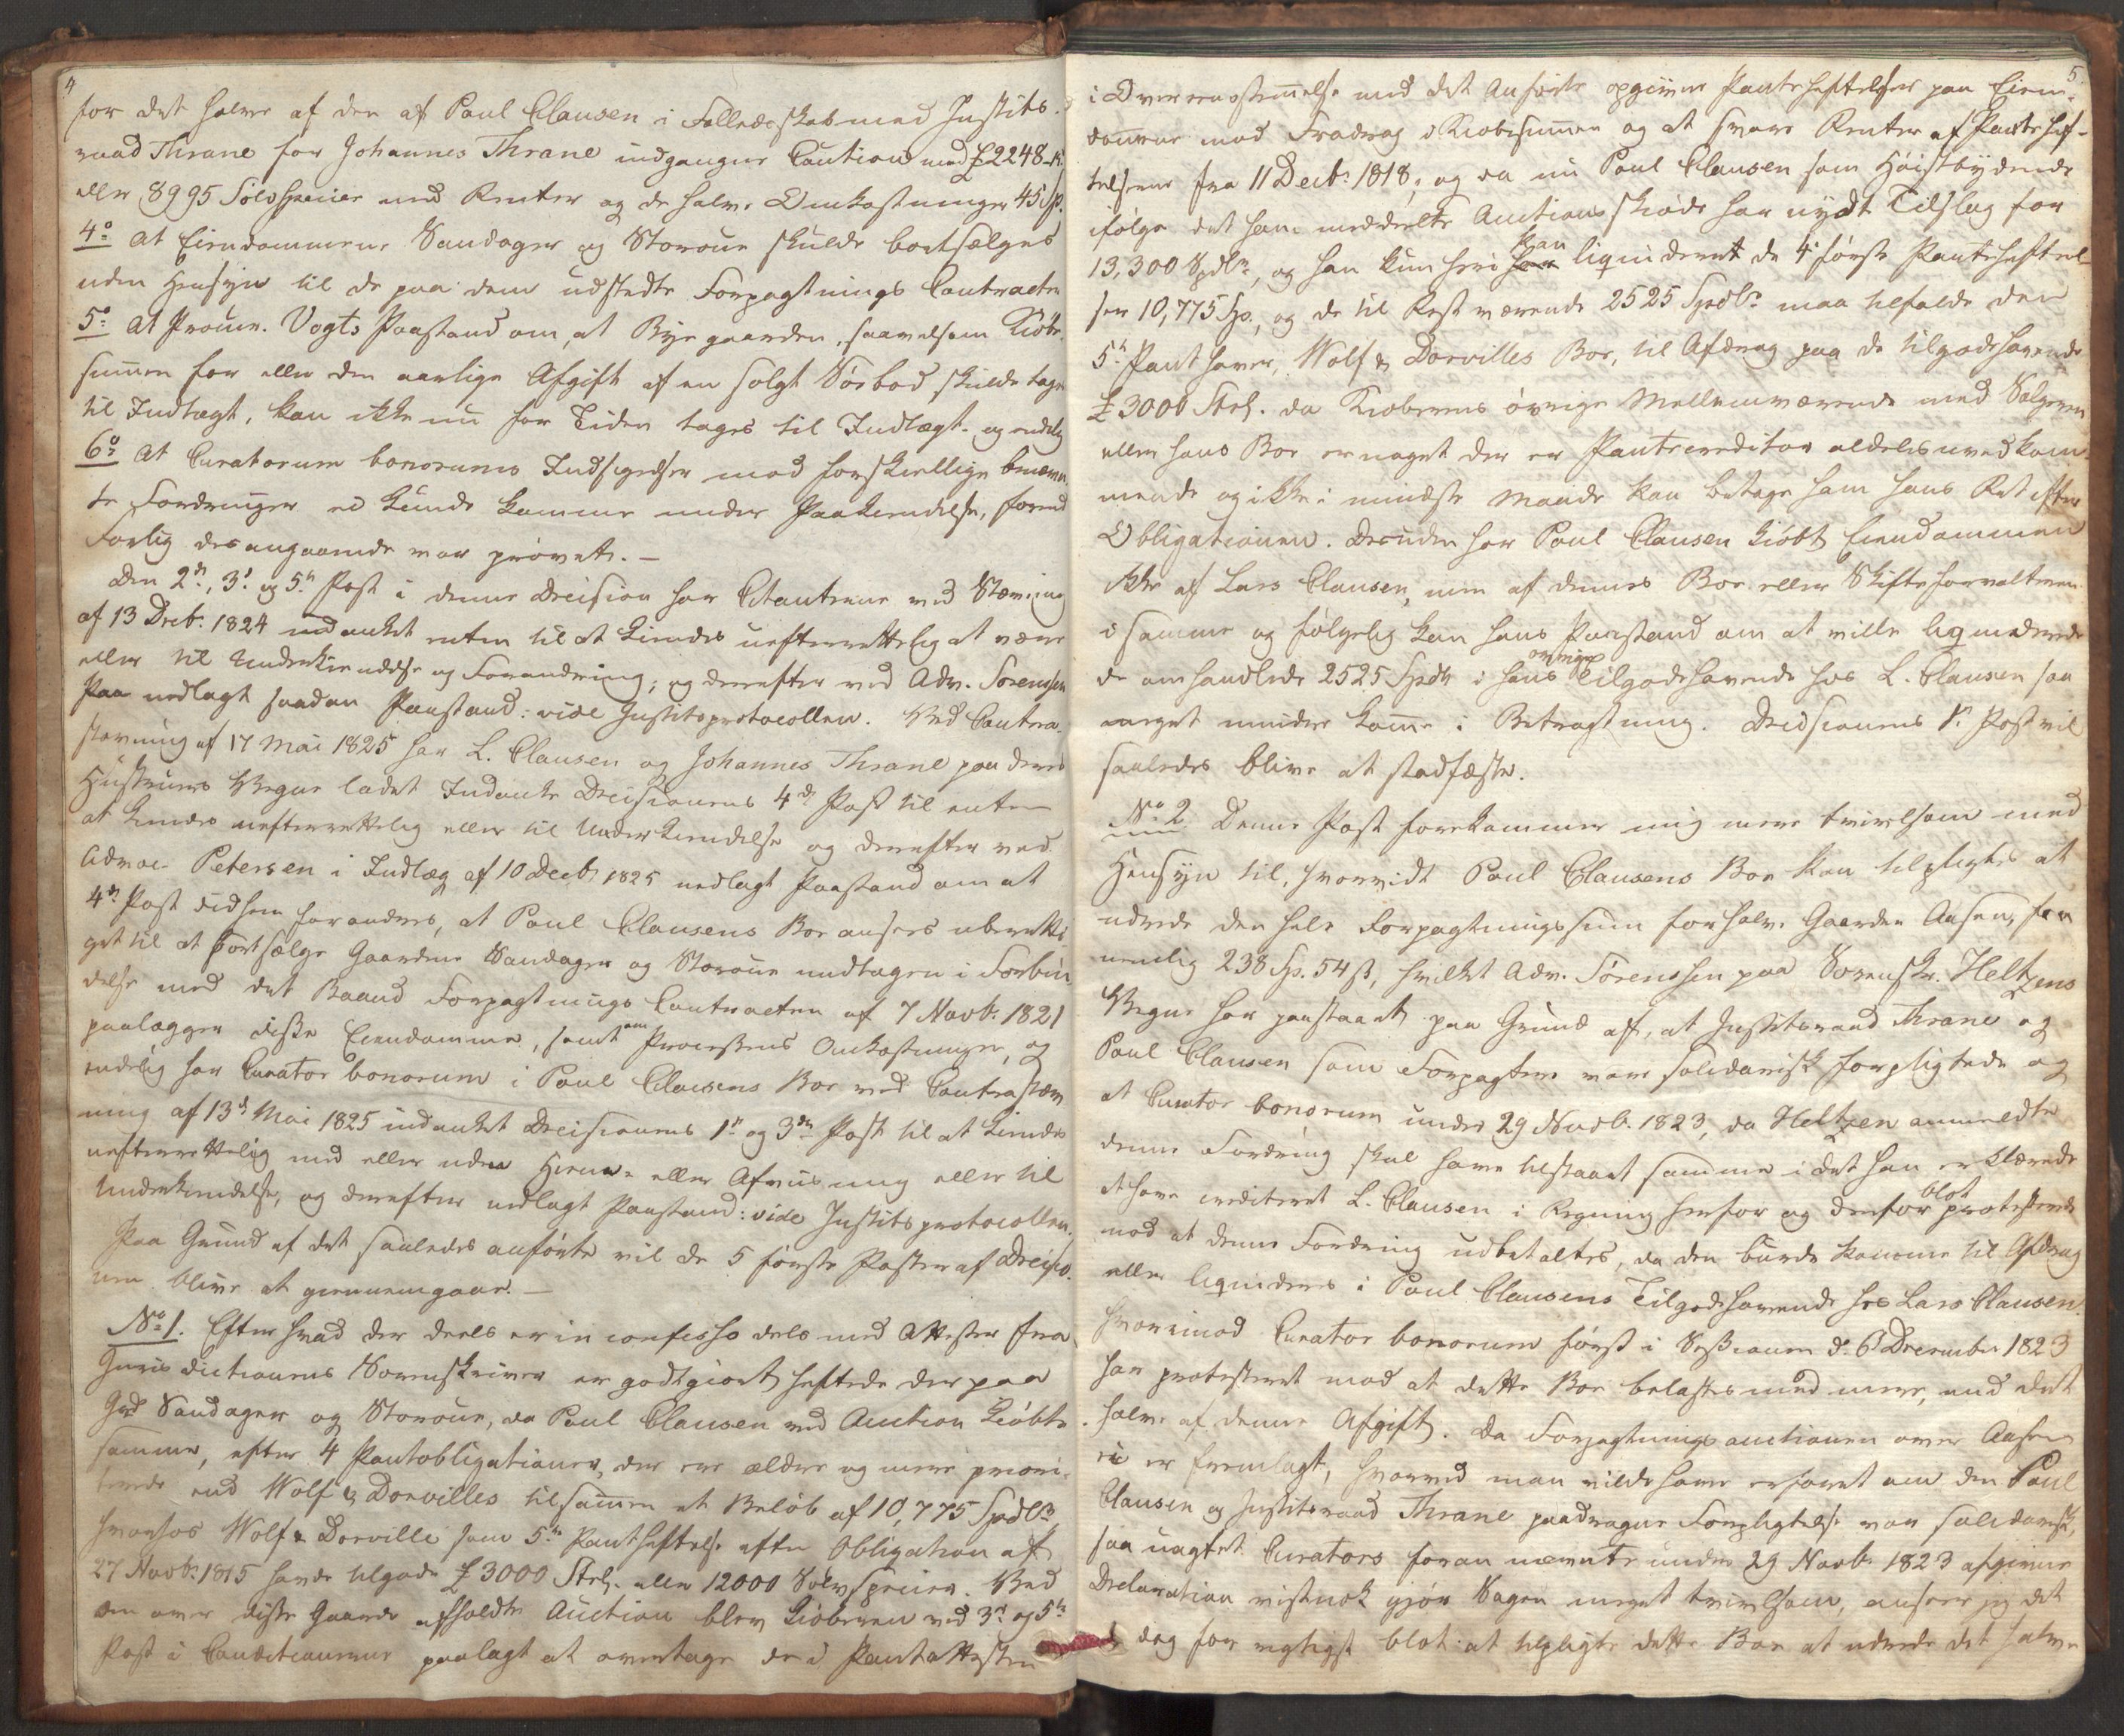 4
for det halve af den af Paul Clausen i Fælledsskab med Justits-
raad Thrane for Johannes Thrane indgangne Caution med £ 2248-15
eller 8995 Sølvspecier med Renter og de halve Omkostninger 45 Sp.
4o at Eiendommene Sandager og Storøen skulde bortsælges
uden Hensyn til de paa dem udstedte Forpagtnings Contracter
5o At Procur. Vogts Paastand om, at Byegaarden, saavelsom Kiøbe-
summen for eller den aarlige Afgift af en solgt Søebod skulde tages
til Indtægt, kan ikke nu for Tiden tages til Indtægt. og endelig
6o At Curatorum bonorums Indsigelser mod forskiellige benævn-
te Fordringer ei kunde komme under Paakiendelse, forend
Forlig desangaaende var prøvet. —
Den 2den, 3die og 5te Post i denne Decision har Citanterne ved Stævning
af 13 Decb. 1824 indanket enten til at kiendes uefterrettelig at være
eller til Underkiendelse og Forandring; og derefter ved Adv. Sørenssen
paa nedlagt saadan Paastand: vide Justitsprotocollen. Ved Contra-
stævning af 17 Mai 1825 har L. Clausen og Johannes Thrane paa deres
Hustruers Vegne ladet Indanke Decisionens 4de Post til enten
at kiendes uefterrettelig eller til Underkiendelse og derefter ved
Advoc. Petersen i Indlæg af 10 Decb. 1825 nedlagt Paastand om at
4de Post forandres, at Paul Clausens Boe ansees uberetti-
get til at bortsælge Gaardene Sandager og Storøen undtagen i Forbin-
delse med det Baand Forpagtnings Contracten af 7 Novb. 1821
paalægger disse Eiendomme, samt om Processens Omkostninger, og
endelig har Curator bonorum i Paul Clausens Boe ved Contrastæv-
ning af 13de Mai 1825 indanket Decisionens 1ste og 3die Post til at kiendes
uefterrettelig med eller uden Hiem- eller Afviisning eller til
Underkiendelse, og derefter nedlagt Paastand: vide Justitsprotocollen.
Paa Grund af det saaledes anførte vil de 5 første Poster af Decisio-
nen blive at giennemgaae. —
No 1. Efter hvad der deels er in confesso dels med Attester fra
Jurisdictionens Sorenskriver er godtgiort heftede der paa
Gd Sandager og Storøen, da Paul Clausen ved Auction kiøbte
samme, efter 4 Pantobligationer, der ere ældre og mere priori-
terede end Wolf & Dorvilles tilsammen et Beløb af 10,775 Spdlr
hvorhos Wolf & Dorville som 5te Pantheftelse efter Obligation af
27 Novb. 1815 havde tilgode £ 3000 Sterl. eller 12000 Sølvspecier. Ved
den over disse Gaarde afholdte Auction blev kiøberen ved 3die og 5te
Post i Conditionerne paalagt at overtage de i Pantattesten
5
i Overeensstemmelse med det Anførte opgivne Panteheftelser paa Eien-
dommene mod Fradrag i Kiøbesummen og at svare Renter af Pantehef-
telserne fra 11 Decb. 1818; og da nu Paul Clausen som Høistbydende
ifølge det ham meddeelte Auctionsskiøde har nydt Tilslag for
13,300 Spdlr, og han kun heri kan liquideret de 4 første Panteheftel-
ser 10,775 Sp., og de til Rest værende 2525 Spdlr maa tilfalde den
5te Panthaver, Wolf & Dorvilles Boe, til Afdrag paa de tilgodehavende
£ 3000 Sterl. da Kiøberens øvrige Mellemværende med Sælgeren
eller hans Boe er noget der er Pantecreditor aldeles uvedkom-
mende og ikke i mindste Maade kan betage ham hans Ret efter
Obligationen. Desuden har Paul Clausen kiøbt Eiendommen
ikke af Lars Clausen, men af dennes Boe eller Skifteforvalteren
i samme og følgelig kan hans Paastand om at ville liquidere
de omhandlede 2525 Spdlr i hans øvrige Tilgodehavende hos L. Clausen saa
meget mindre komme i Betragtning. Decisionens 1ste Post vil
saaledes blive at stadfæste.
No 2 Denne Post forekommer mig mere tvivlsom med
Hensyn til, hvorvidt Paul Clausens Boe kan tilpligtes at
udrede den hele Forpagtningssum for halve Gaarden Aasen,
nemlig 238 Sp. 54 ß, hvilket Adv. Sørenssen paa Sorenskr. Heltzens
Vegne har paastaaet paa Grund af, at Justitsraad Thrane og
Paul Clausen som Forpagtere vare solidarisk forpligtede og
at Curator bonorum under 29 Novb. 1823, da Heltzen anmeldte
denne Fordring skal have tilstaaet samme i det han erklærede
at have crediteret L. Clausen i Regning herfor og derfor blot protesterede
mod at denne Fordring udbetaltes, da den burde komme til Afdrag
eller liquideres i Paul Clausens Tilgodehavende hos Lars Clausen.
hvorimod Curator bonorum først i Sessionen d. 6 December 1823
har protesteret mod at dette Boe belastes med mere, end det
halve af denne Afgift. Da Forpagtningsauctionen over Aasen
ei er fremlagt, hvorved man vilde have erfaret om den Paul
Clausen og Justitsraad Thrane paadragne Forpligtelse var solidarisk,
saa uagtet Curators forannævnte under 29 Novb. 1823 afgivne
Declaration vistnok gjør Sagen meget tvivlsom, anseer jeg det
dog for rigtigst blot at tilpligte dette Boe at udrede det halve